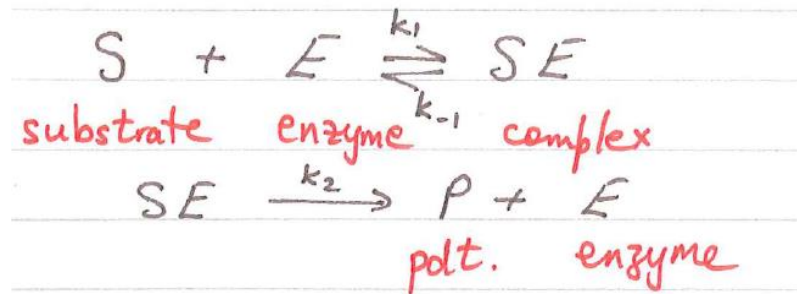 S + E ⇌ SE
k₁
k₋₁
substrate enzyme complex
SE → P + E
k₂
pdt. enzyme